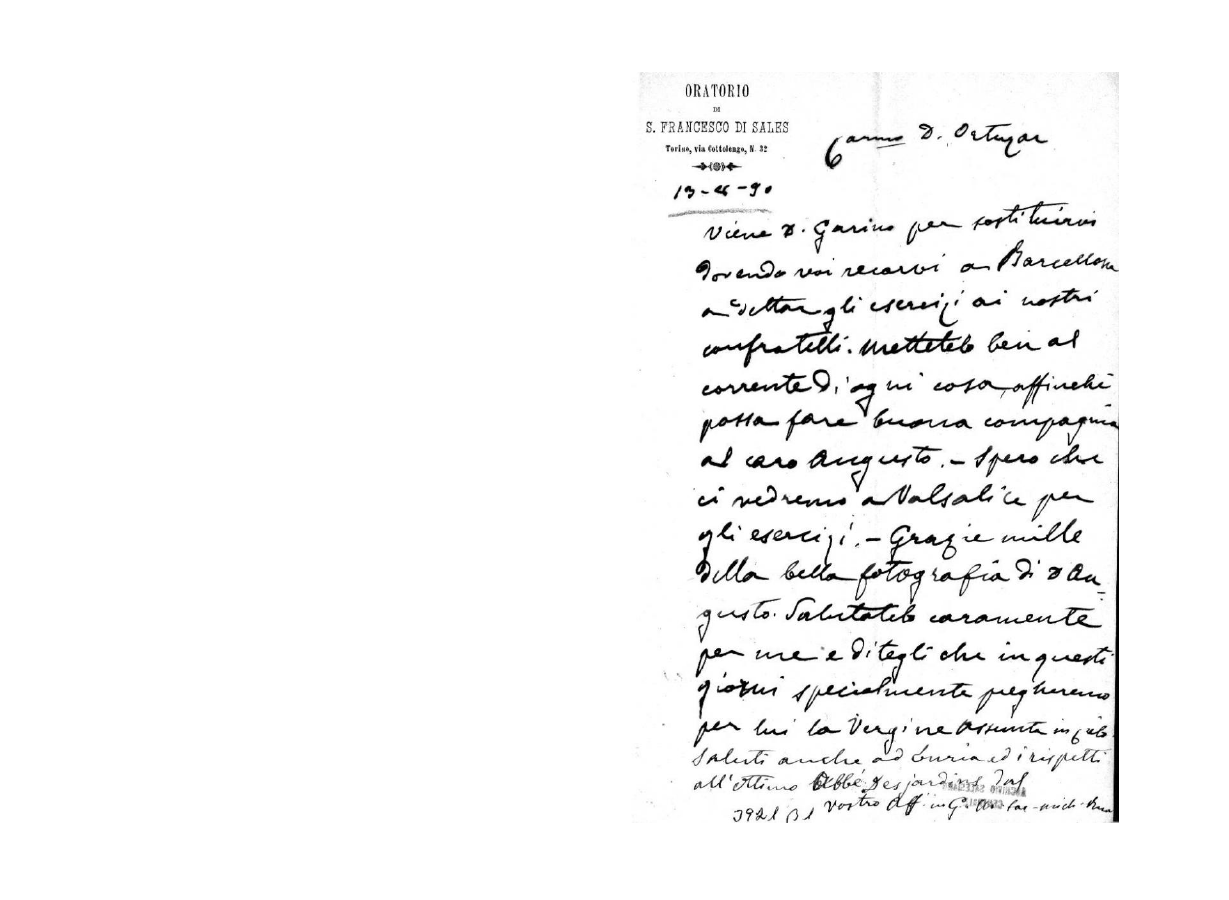 ORATORIO
DI
S. FRANCESCO DI SALES
Torino, via Cottolengo, N. 32
13-8-90
Carmo D. Ortuzar
Viene D. Garino per sostituirvi
dovendo voi recarvi a Barcellona
a dettar gli esercizi ai nostri
confratelli. Mettetelo ben al
corrente di ogni cosa, affinchè
possa fare buona compagnia
al caro Augusto. – Spero che
ci vedremo a Valsalice per
gli esercizi. – Grazie mille
della bella fotografia di D Au-
gusto. Salutatelo caramente
per me e ditegli che in questi
giorni specialmente pregheremo
per lui la Vergine Assunta in cielo.
Saluti anche ad Buria ed i rispetti
all'ottimo Abbé Desjardins, dal
vostro Aff in G.